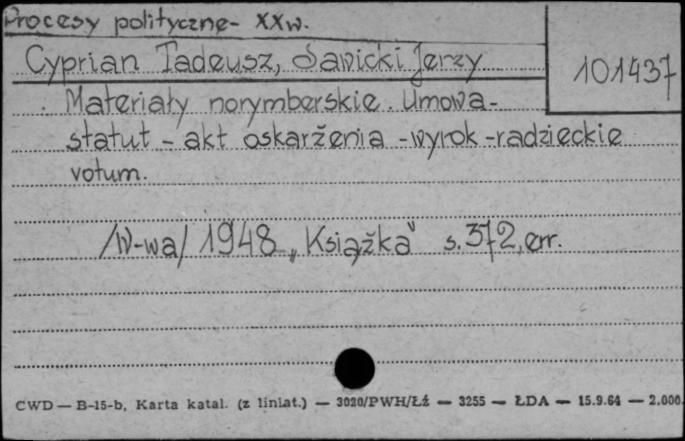 Procesy polityczne - XXw.
Cyprian Tadeusz, Sawicki Jerzy
101437
Materiały norymberskie. Umowa-
statut - akt oskarżenia - wyrok - radzieckie
votum.
/W-wa/ 1948 „Książka" s. 372, err.
CWD — B-15-b, Karta katal. (z liniat.) — 3020/PWH/Łź — 3255 — ŁDA — 15.9.64 — 2.000.